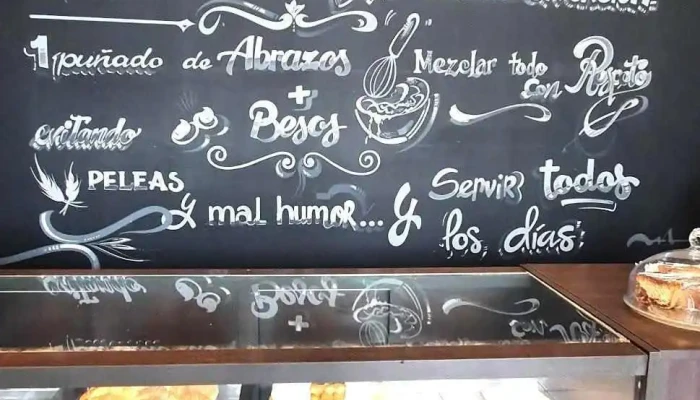 1 puñado de Abrazos
+
Besos
evitando
PELEAS
y mal humor...
Mezclar todo
con Respeto
y
Servir todos
los días;